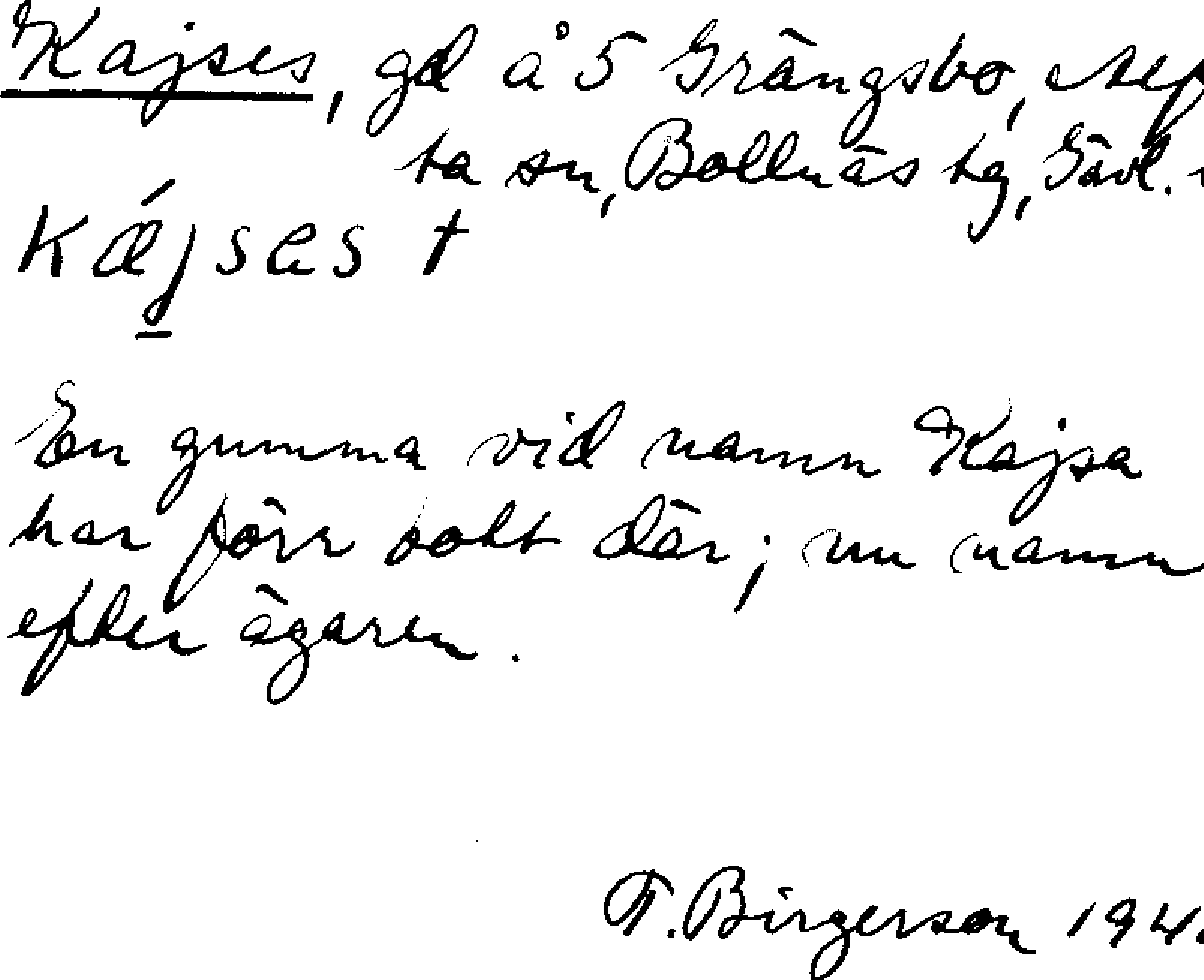 Kajses, gd å 5 Grängsbo, Alf
ta sn, Bollnäs tg, Gävl.
kǽjses †
En gumma vid namn Kajsa
har förr bott där; nu namn
efter ägaren.
F. Birgerson